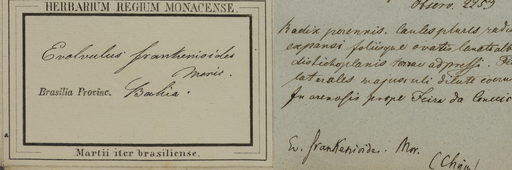 HERBARIUM REGIUM MONACENSE.
Evolvulus frankenioides
Moric.
Brasilia Provinc. Bahia.
Martii iter brasiliense.
Observ. 2259
Radix perennis. Caules plures
expansi foliisque ovatis
distichoplanis terrae adpressi.
laterales majusculi dilute
In arenosis prope Feira da
Ev. frankenioides. Mor.